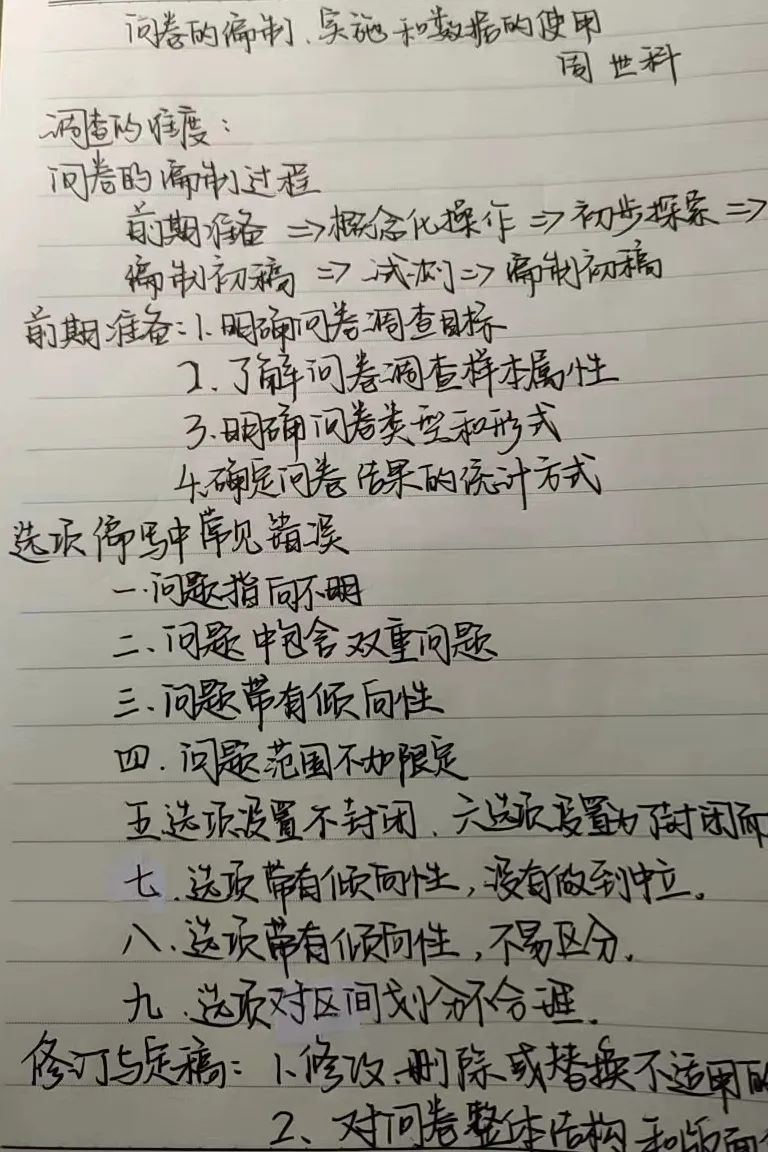 问卷的编制、实施和数据的使用
周世科
调查的维度：
问卷的编制过程
前期准备 => 概念化操作 => 初步探索 =>
编制初稿 => 试测 => 编制初稿
前期准备：1.明确问卷调查目标
2.了解问卷调查样本属性
3.明确问卷类型和形式
4.确定问卷结果的统计方式
选项编写中常见错误
一.问题指向不明
二、问题中包含双重问题
三.问题带有倾向性
四.问题范围不加限定
五选项设置不封闭、六选项设置为了封闭而
七.选项带有倾向性，没有做到中立。
八.选项带有倾向性，不易区分.
九.选项对区间划分不合理.
修订与定稿：1.修改、删除或替换不适用的
2、对问卷整体结构和版面